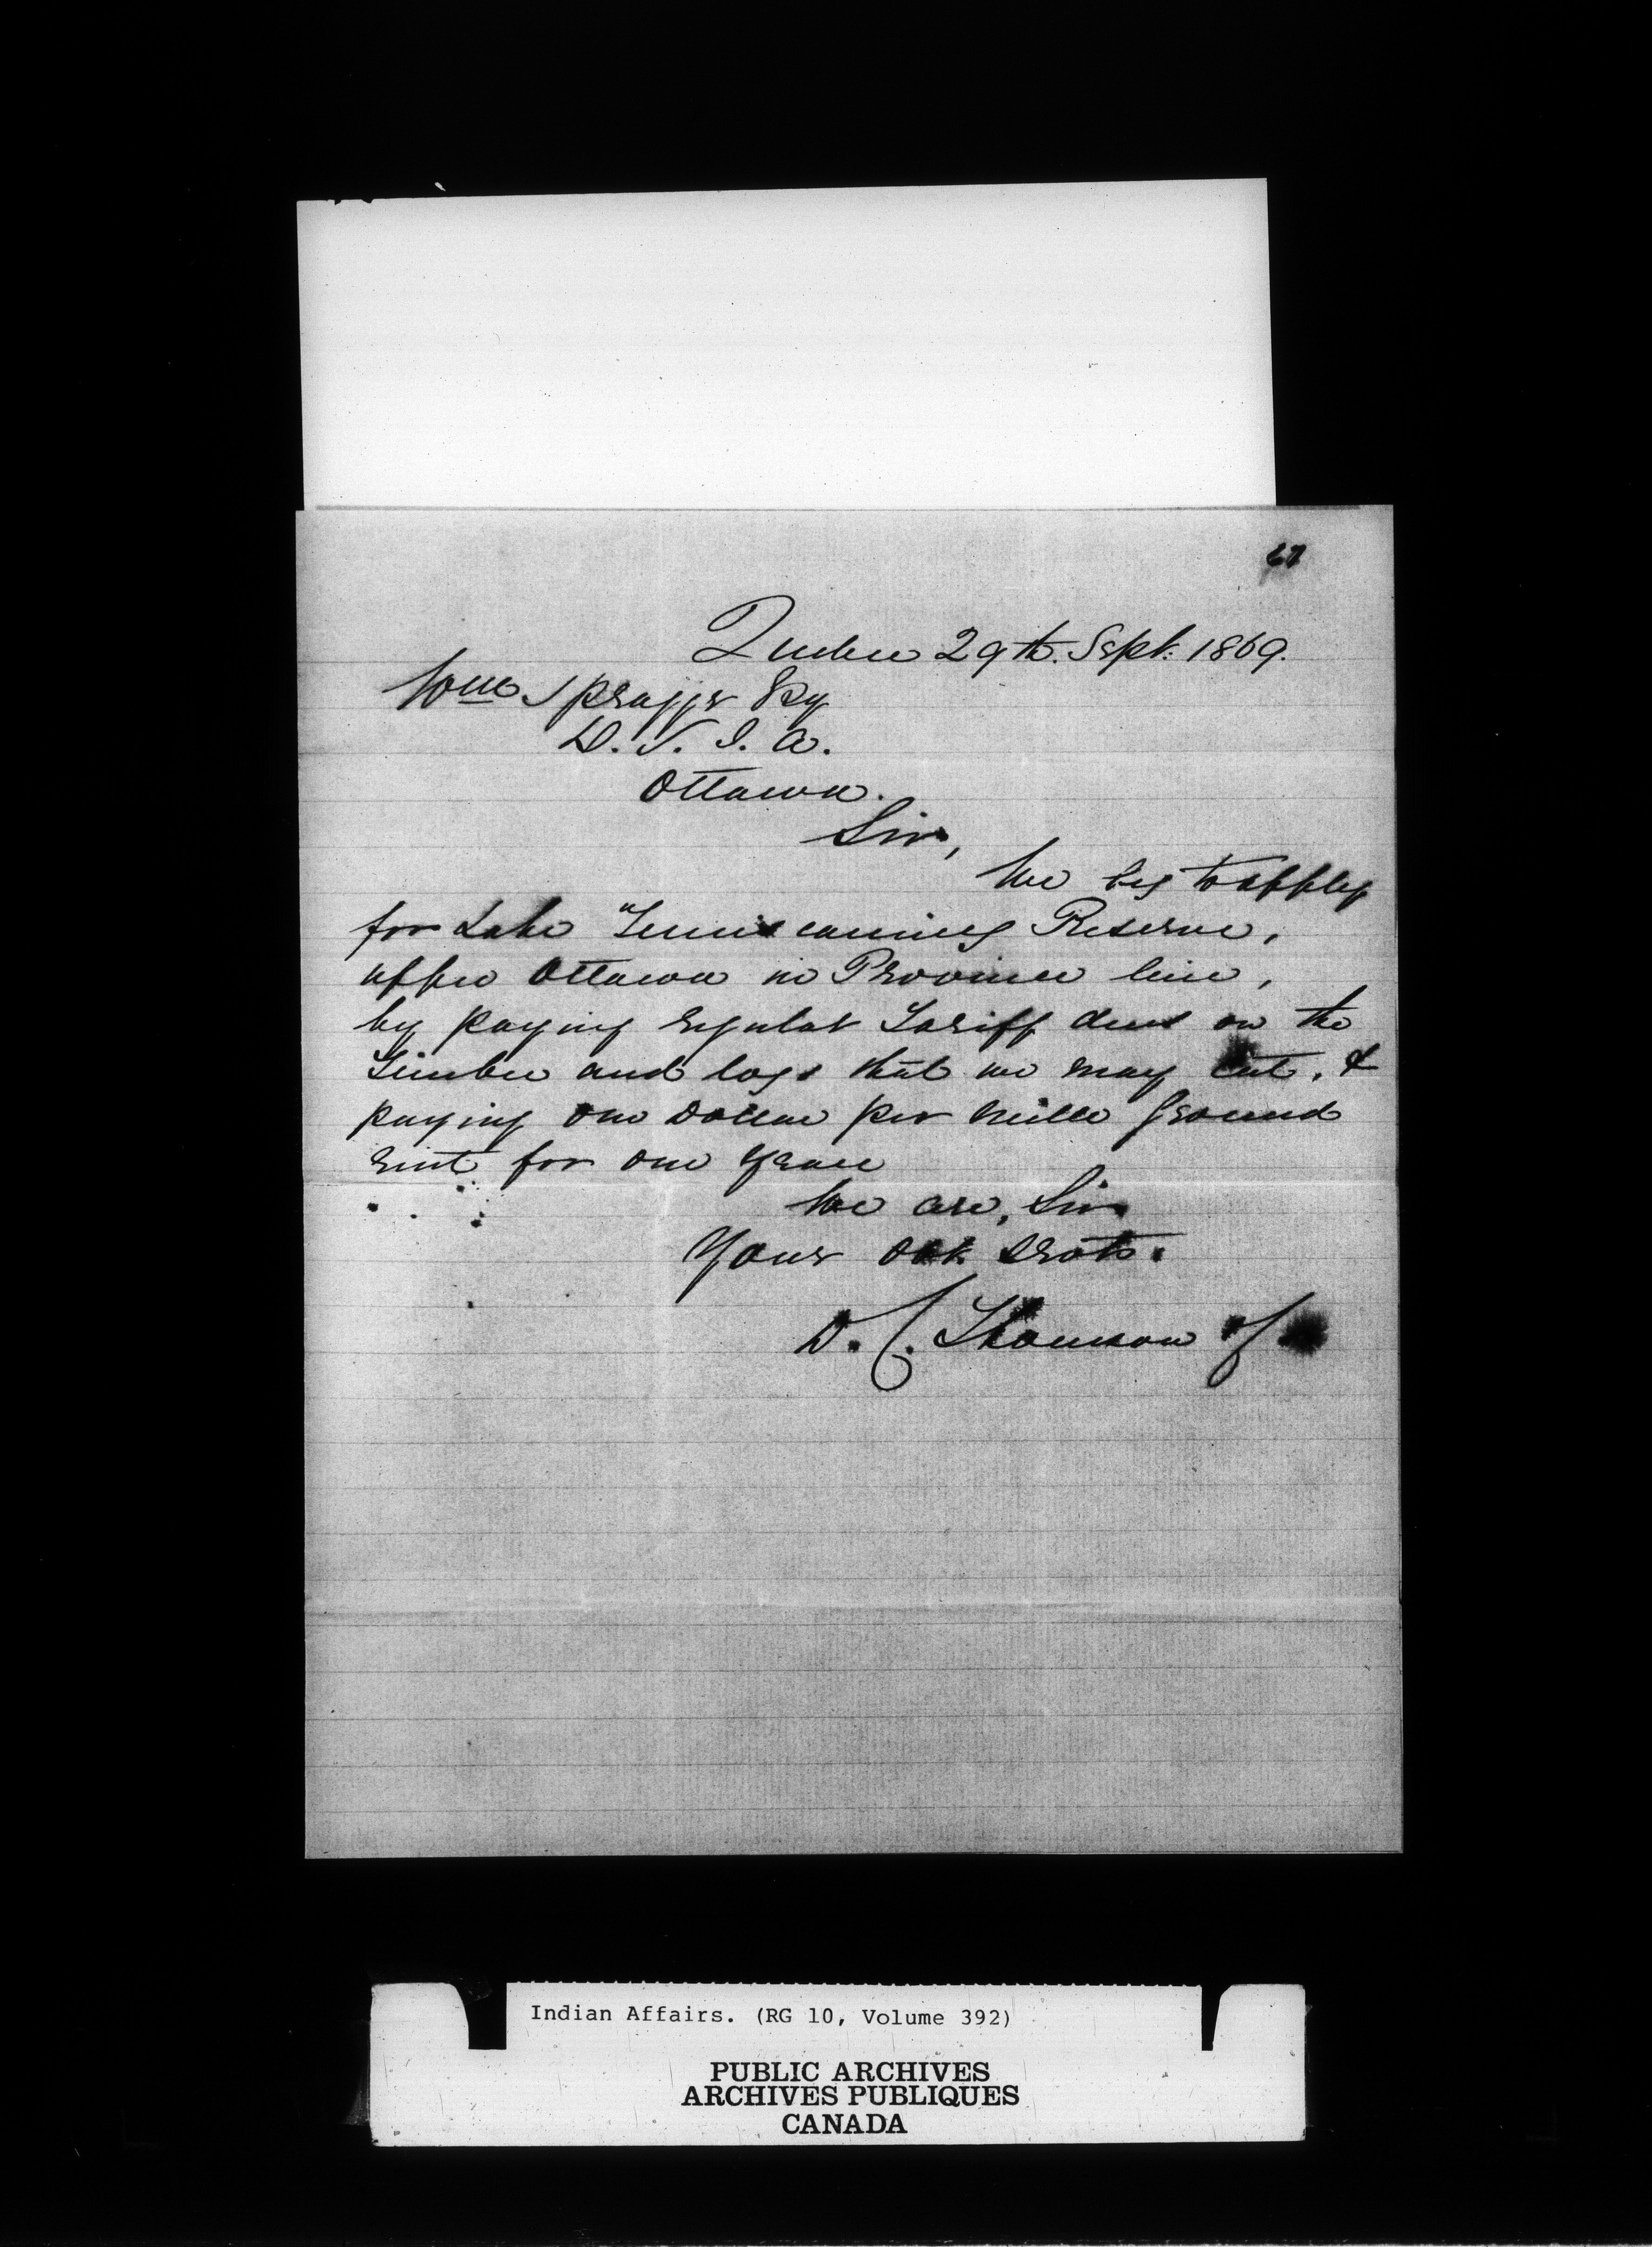 67
Quebec 29th. Sept: 1869.
Wm Spragge Esq
D. S. I. A.
Ottawa.
Sir,
We beg to apply
for Lake "Temiscaming Reserve,
upper Ottawa in Province line,
by paying regular Tariff dues on the
Timber and logs that we may cut, &
paying one Dollar per mille ground
rent for one year
We are, Sir
Your obt. srvts.
D. C. Thomson
Indian Affairs. (RG 10, Volume 392)
PUBLIC ARCHIVES
ARCHIVES PUBLIQUES
CANADA